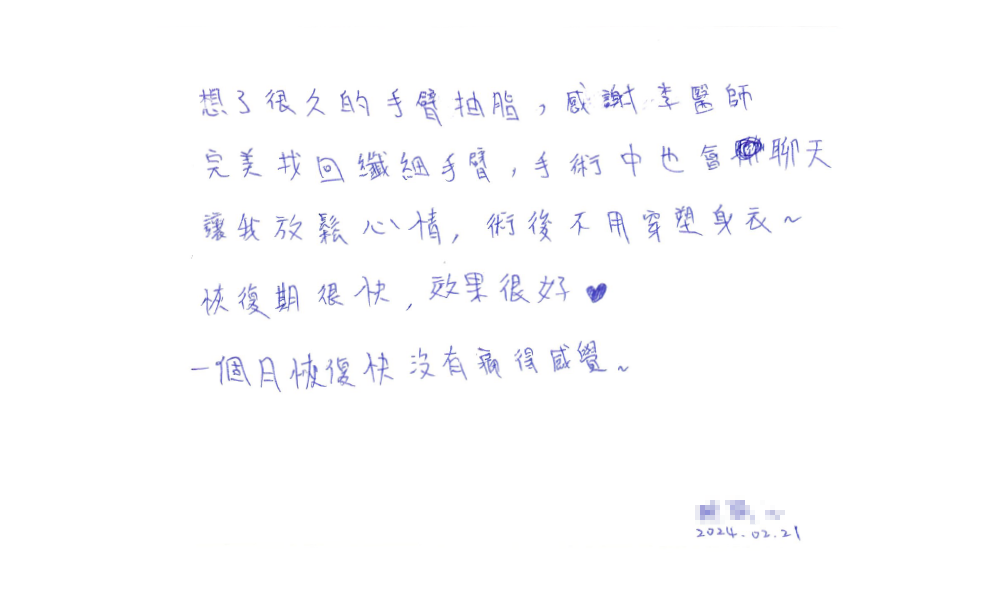 想了很久的手臂抽脂，感謝李醫師
完美找回纖細手臂，手術中也會聊天
讓我放鬆心情，術後不用穿塑身衣～
恢復期很快，效果很好♥
一個月恢復快沒有痛得感覺～
2024.02.21